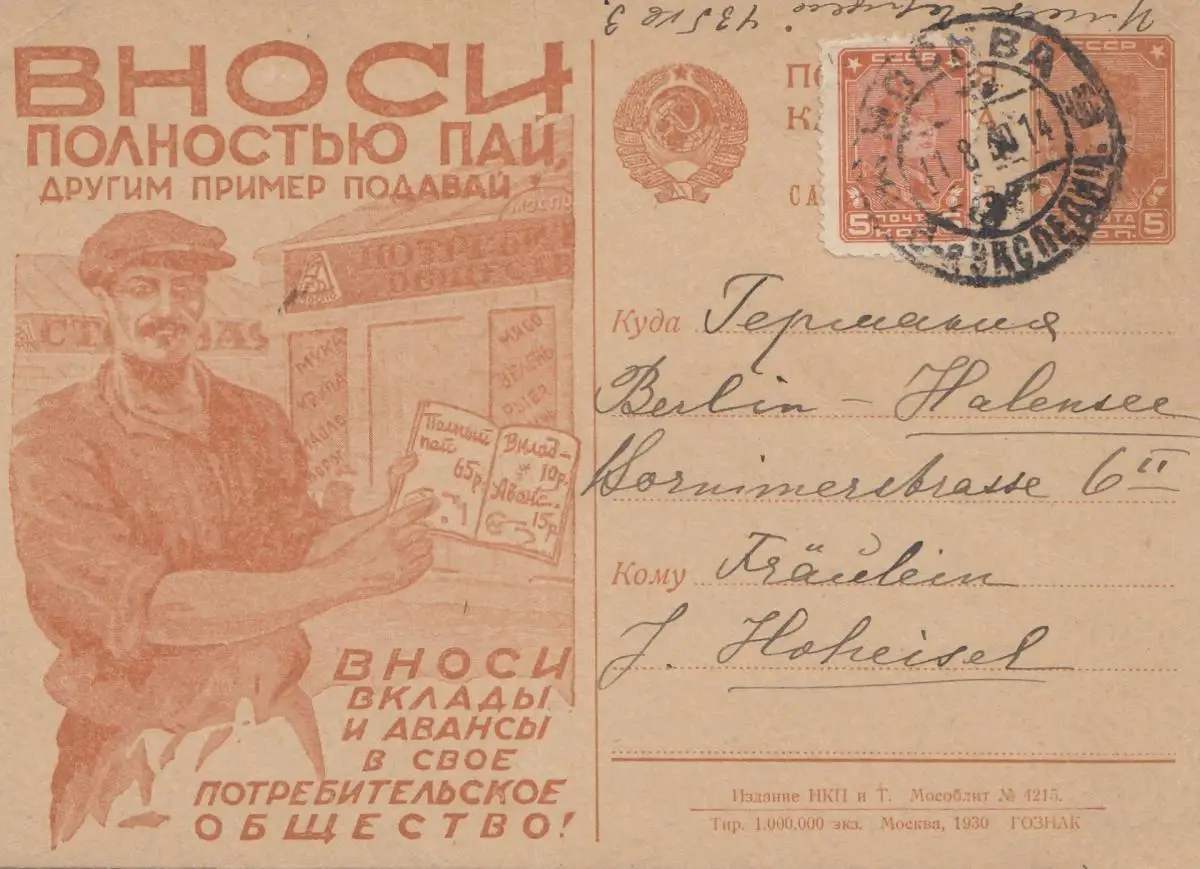 ВНОСИ
ПОЛНОСТЬЮ ПАЙ,
ДРУГИМ ПРИМЕР ПОДАВАЙ!
МУКА
КРУПА
МАСЛО
МЯСО
ЗЕЛЕНЬ
Полный
пай
65р.
Вклад-
10р.
Аванс-
15р
ВНОСИ
ВКЛАДЫ
И АВАНСЫ
В СВОЕ
ПОТРЕБИТЕЛЬСКОЕ
ОБЩЕСТВО!
СССР
5 ПОЧТА 5
КОП.
СССР
5
КОП.
МОСКВА
11 8 30 14
ЭКСПЕДИЦ.
Куда Германия
Berlin – Halensee
Bornimerstrasse 6 II
Кому Fräulein
J. Hoheisel
Издание НКП и Т. Мособлит № 4215.
Тир. 1.000.000 экз. Москва, 1930 ГОЗНАК